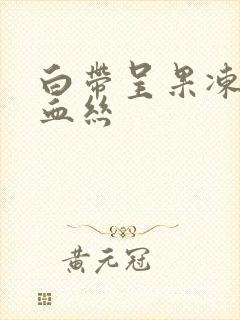 白帶呈果凍
血絲
黃元冠